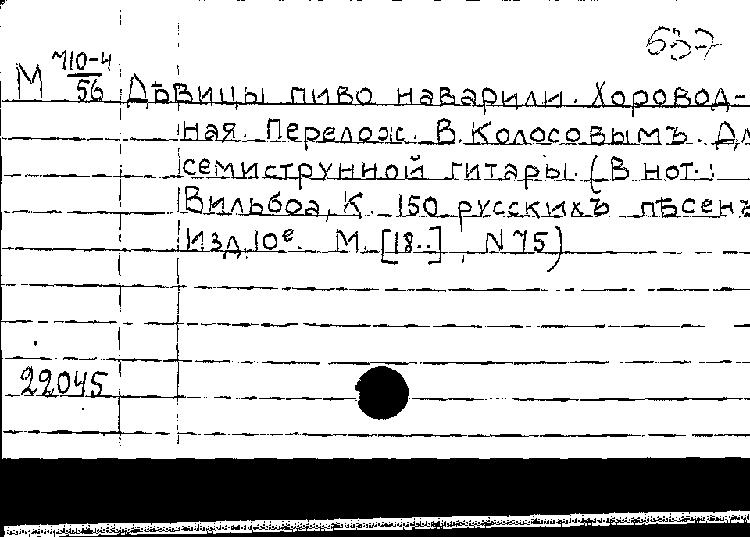 537
М 710-4/56 Дѣвицы пиво наварили. Хоровод-
ная. Перелож. В. Колосовымъ. Дл
семиструнной гитары. (В нот.:
Вильбоа, К. 150 русскихъ пѣсенъ
Изд. 10е. М. [18..], N 75)
22045